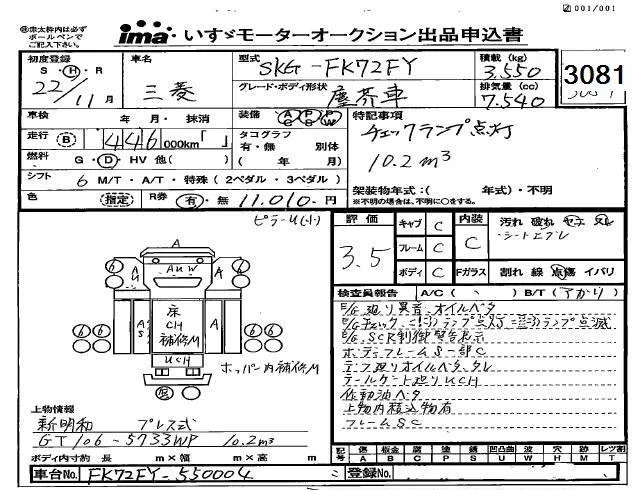 001/001
※太枠内は必ず
ボールペンで
ご記入下さい。
ima いすゞモーターオークション出品申込書
初度登録
S・H・R
22年11月
車名
三菱
型式
SKG-FK72FY
グレード・ボディ形状
塵芥車
積載 (kg)
3,550
排気量 (cc)
7.540
3081
車検 年 月・抹消
装備 AC PS PW
特記事項
チェックランプ点灯
10.2m³
走行 B 446,000km「 」
タコグラフ
有・無 別体
( 年 月)
燃料 G・D・HV 他( )
シフト 6 M/T・A/T・特殊(2ペダル・3ペダル)
架装物年式:( 年式)・不明
※不明の場合は、不明に○をする。
色 (指定) R券 有・無 11,010.円
ピラーU(小)
評価
3.5
キャブ C
フレーム C
ボディ C
内装
C
Fガラス
汚れ 破れ ヤニ スレ
・シートコゲレ
割れ 線 点傷 イバリ
検査員報告 A/C( ) B/T(アカリ)
E/G廻り異音、オイルベタ
E/G SCR制御警告表示
ボディフレームS一部C
デフ廻りオイルベタ、タレ
テールゲート廻りUCH
作動油ベタ
上物内積込物有
フレームSC
A
A
AUW
A
AU
A
S
床
CH
補修M
UCH
6
6
6
6
ホッパー内補修M
上物情報
新明和 プレス式
GT106-5733WP 10.2m³
ボディ内寸約 長 m×幅 m×高 m
記号 傷 板金 腐 塗 錆 凹凸曲 凹 波 穴 跡 レツ割
A B C P S U E W H M T
車台No. FK72FY-550004
登録No.